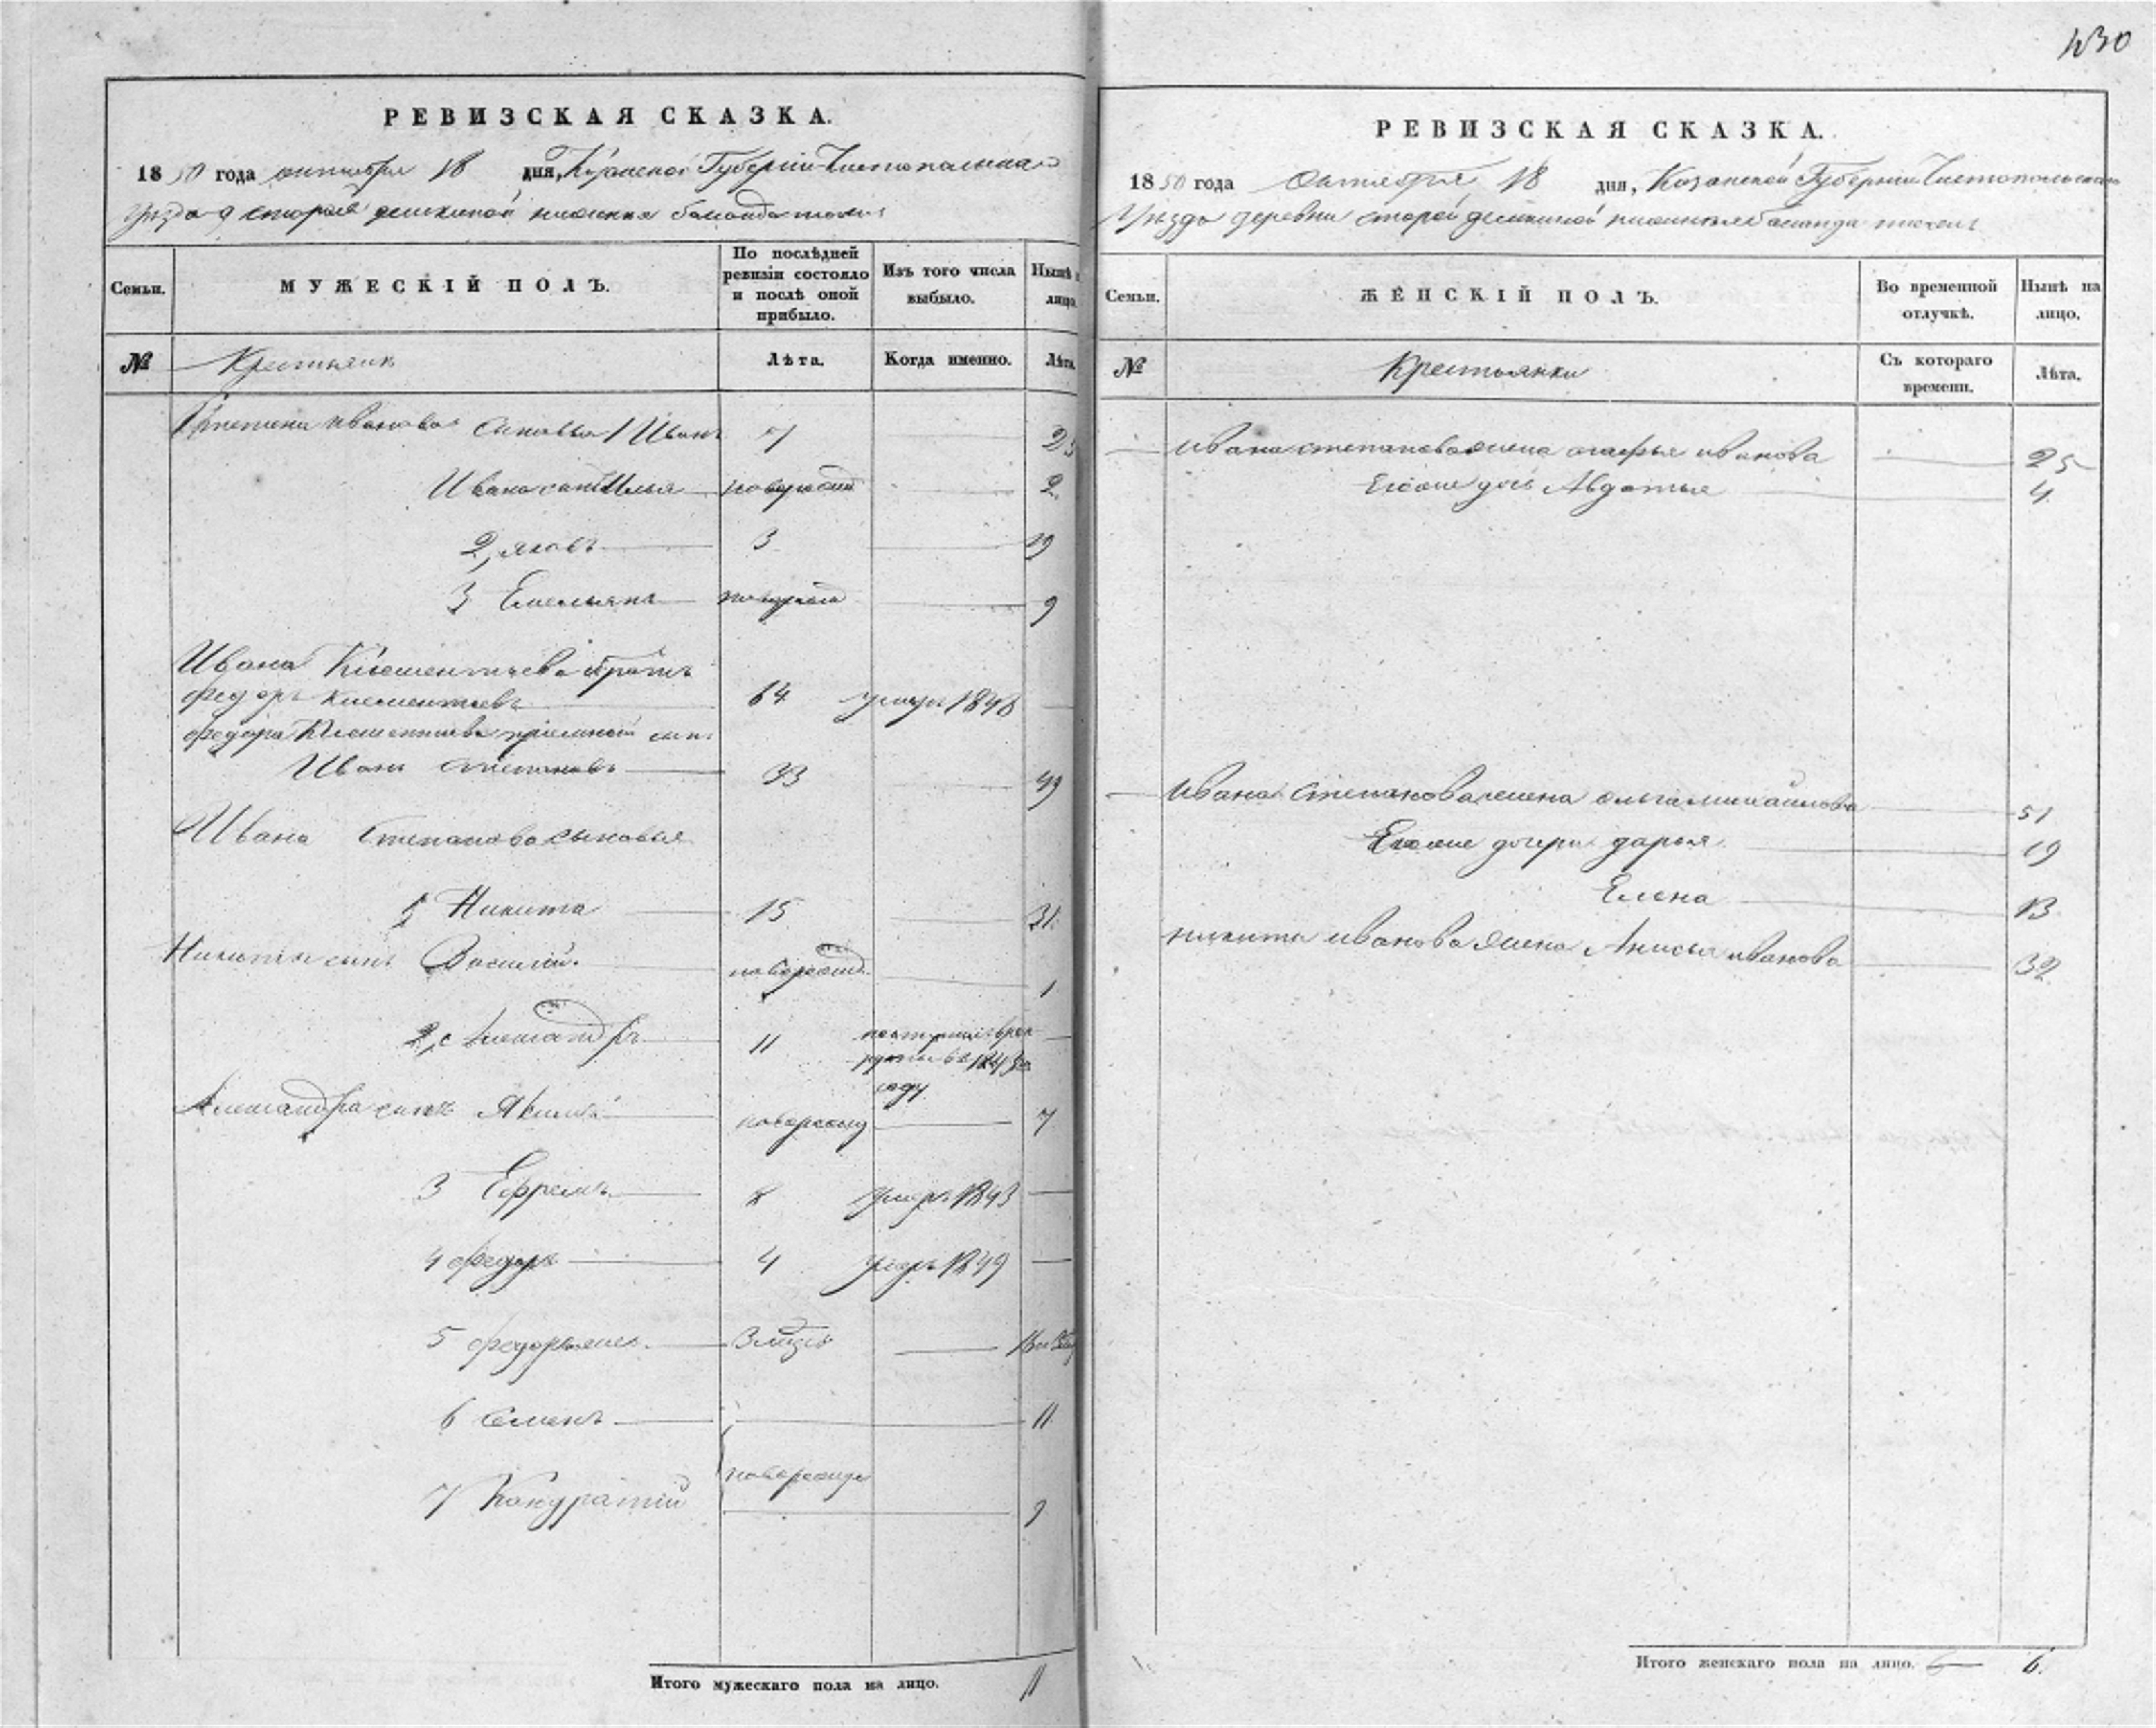 430
РЕВИЗСКАЯ СКАЗКА.
1850 года октября 18 дня, Казанской Губернии Чистопольскаго
Уезда д старой
Семьи.
МУЖЕСКІЙ ПОЛЪ.
По послѣдней ревизіи состояло и послѣ оной прибыло.
Изъ того числа выбыло.
Нынѣ
лицо.
№
Крестьяни
Лѣта.
Когда именно.
Лѣта.
Степана Иванова сыновья 1 Иванъ 7 23
Ивана сынъ Илья новорожд 2
2, яковъ 3 19
3 Емельянъ новорожд 9
Ивана Клементьева братъ
федоръ Клементьевъ 64 умеръ 1848
федора Клементьева пріемной сынъ
Иванъ Степановъ 33 49
Ивана Степанова сыновья
1 Никита 15 31
Никиты сынъ Василій новорожд. 1
2, Александръ 11 поступилъ врек
руты въ 1843
году
Александра сынъ Якимъ новорожд 7
3 Ефремъ 8 умеръ 1843
4 федоръ 4 умеръ 1849
5 федоръ
6 Семенъ 11
новорожд
7 Кондратій 9
Итого мужескаго пола на лицо. 11
РЕВИЗСКАЯ СКАЗКА.
1850 года Октября 18 дня, Казанской Губернии Чистопольскаго
Уезда деревни старой
Семьи.
ЖЕНСКІЙ ПОЛЪ.
Во временной отлучкѣ.
Нынѣ на лицо.
№
Крестьянки
Съ котораго времени.
Лѣта.
Ивана степанова жена агафья иванова 25
Егоже дочь Авдотья 4
Ивана Степанова жена ольга михайлова 51
Егоже дочери дарья 19
Елена 13
никиты иванова жена Анисья иванова 32
Итого женскаго пола на лицо. 6.